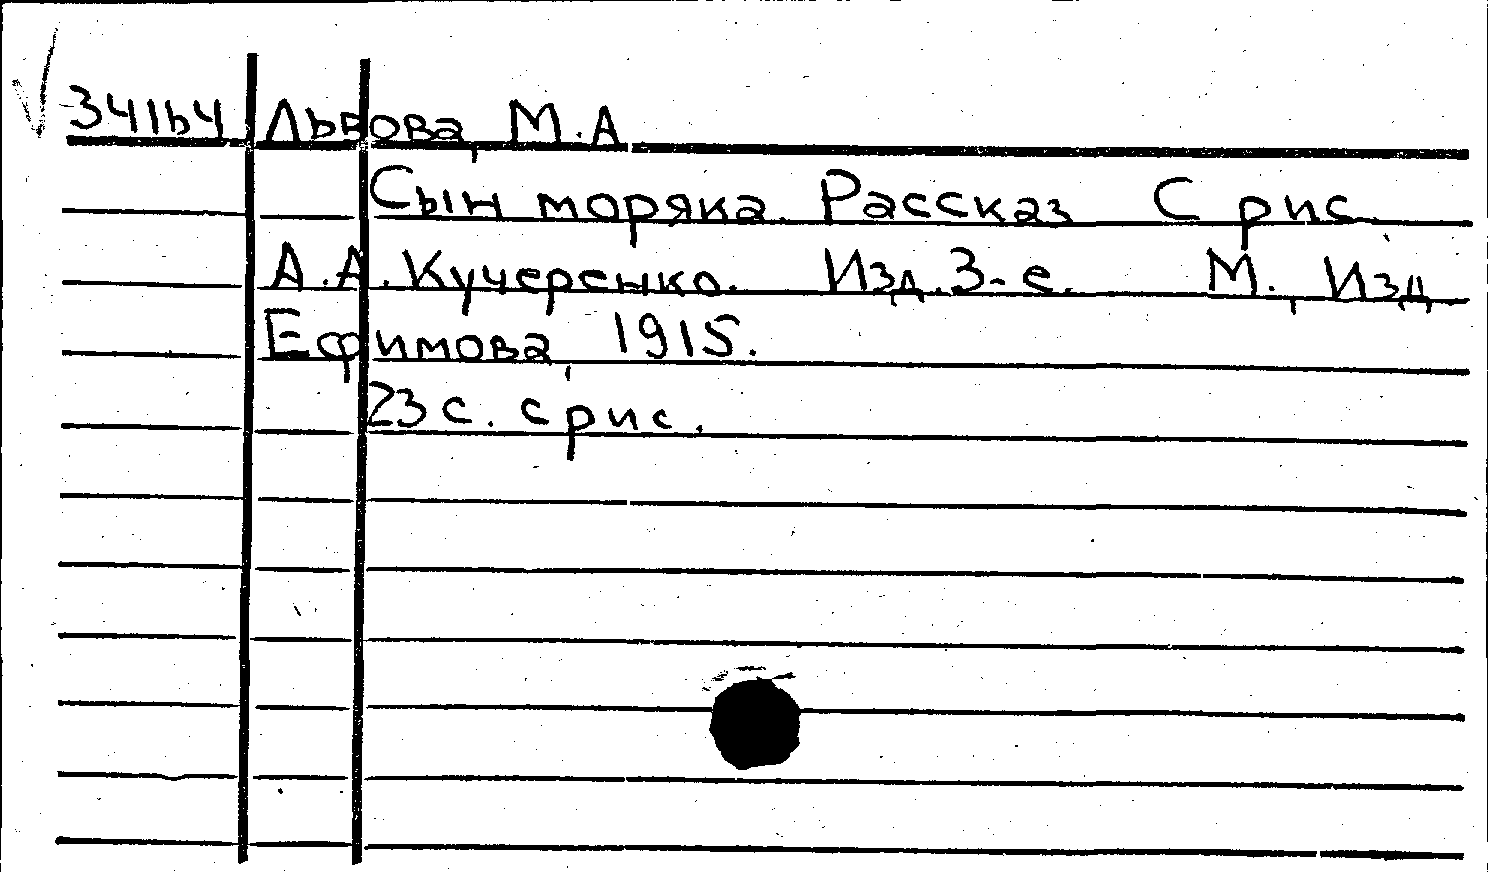 34164 Львова, М.А
Сын моряка. Рассказ С рис.
А.А.Кучеренко. Изд.3-е. М., Изд
Ефимова, 1915.
23 с. с рис.